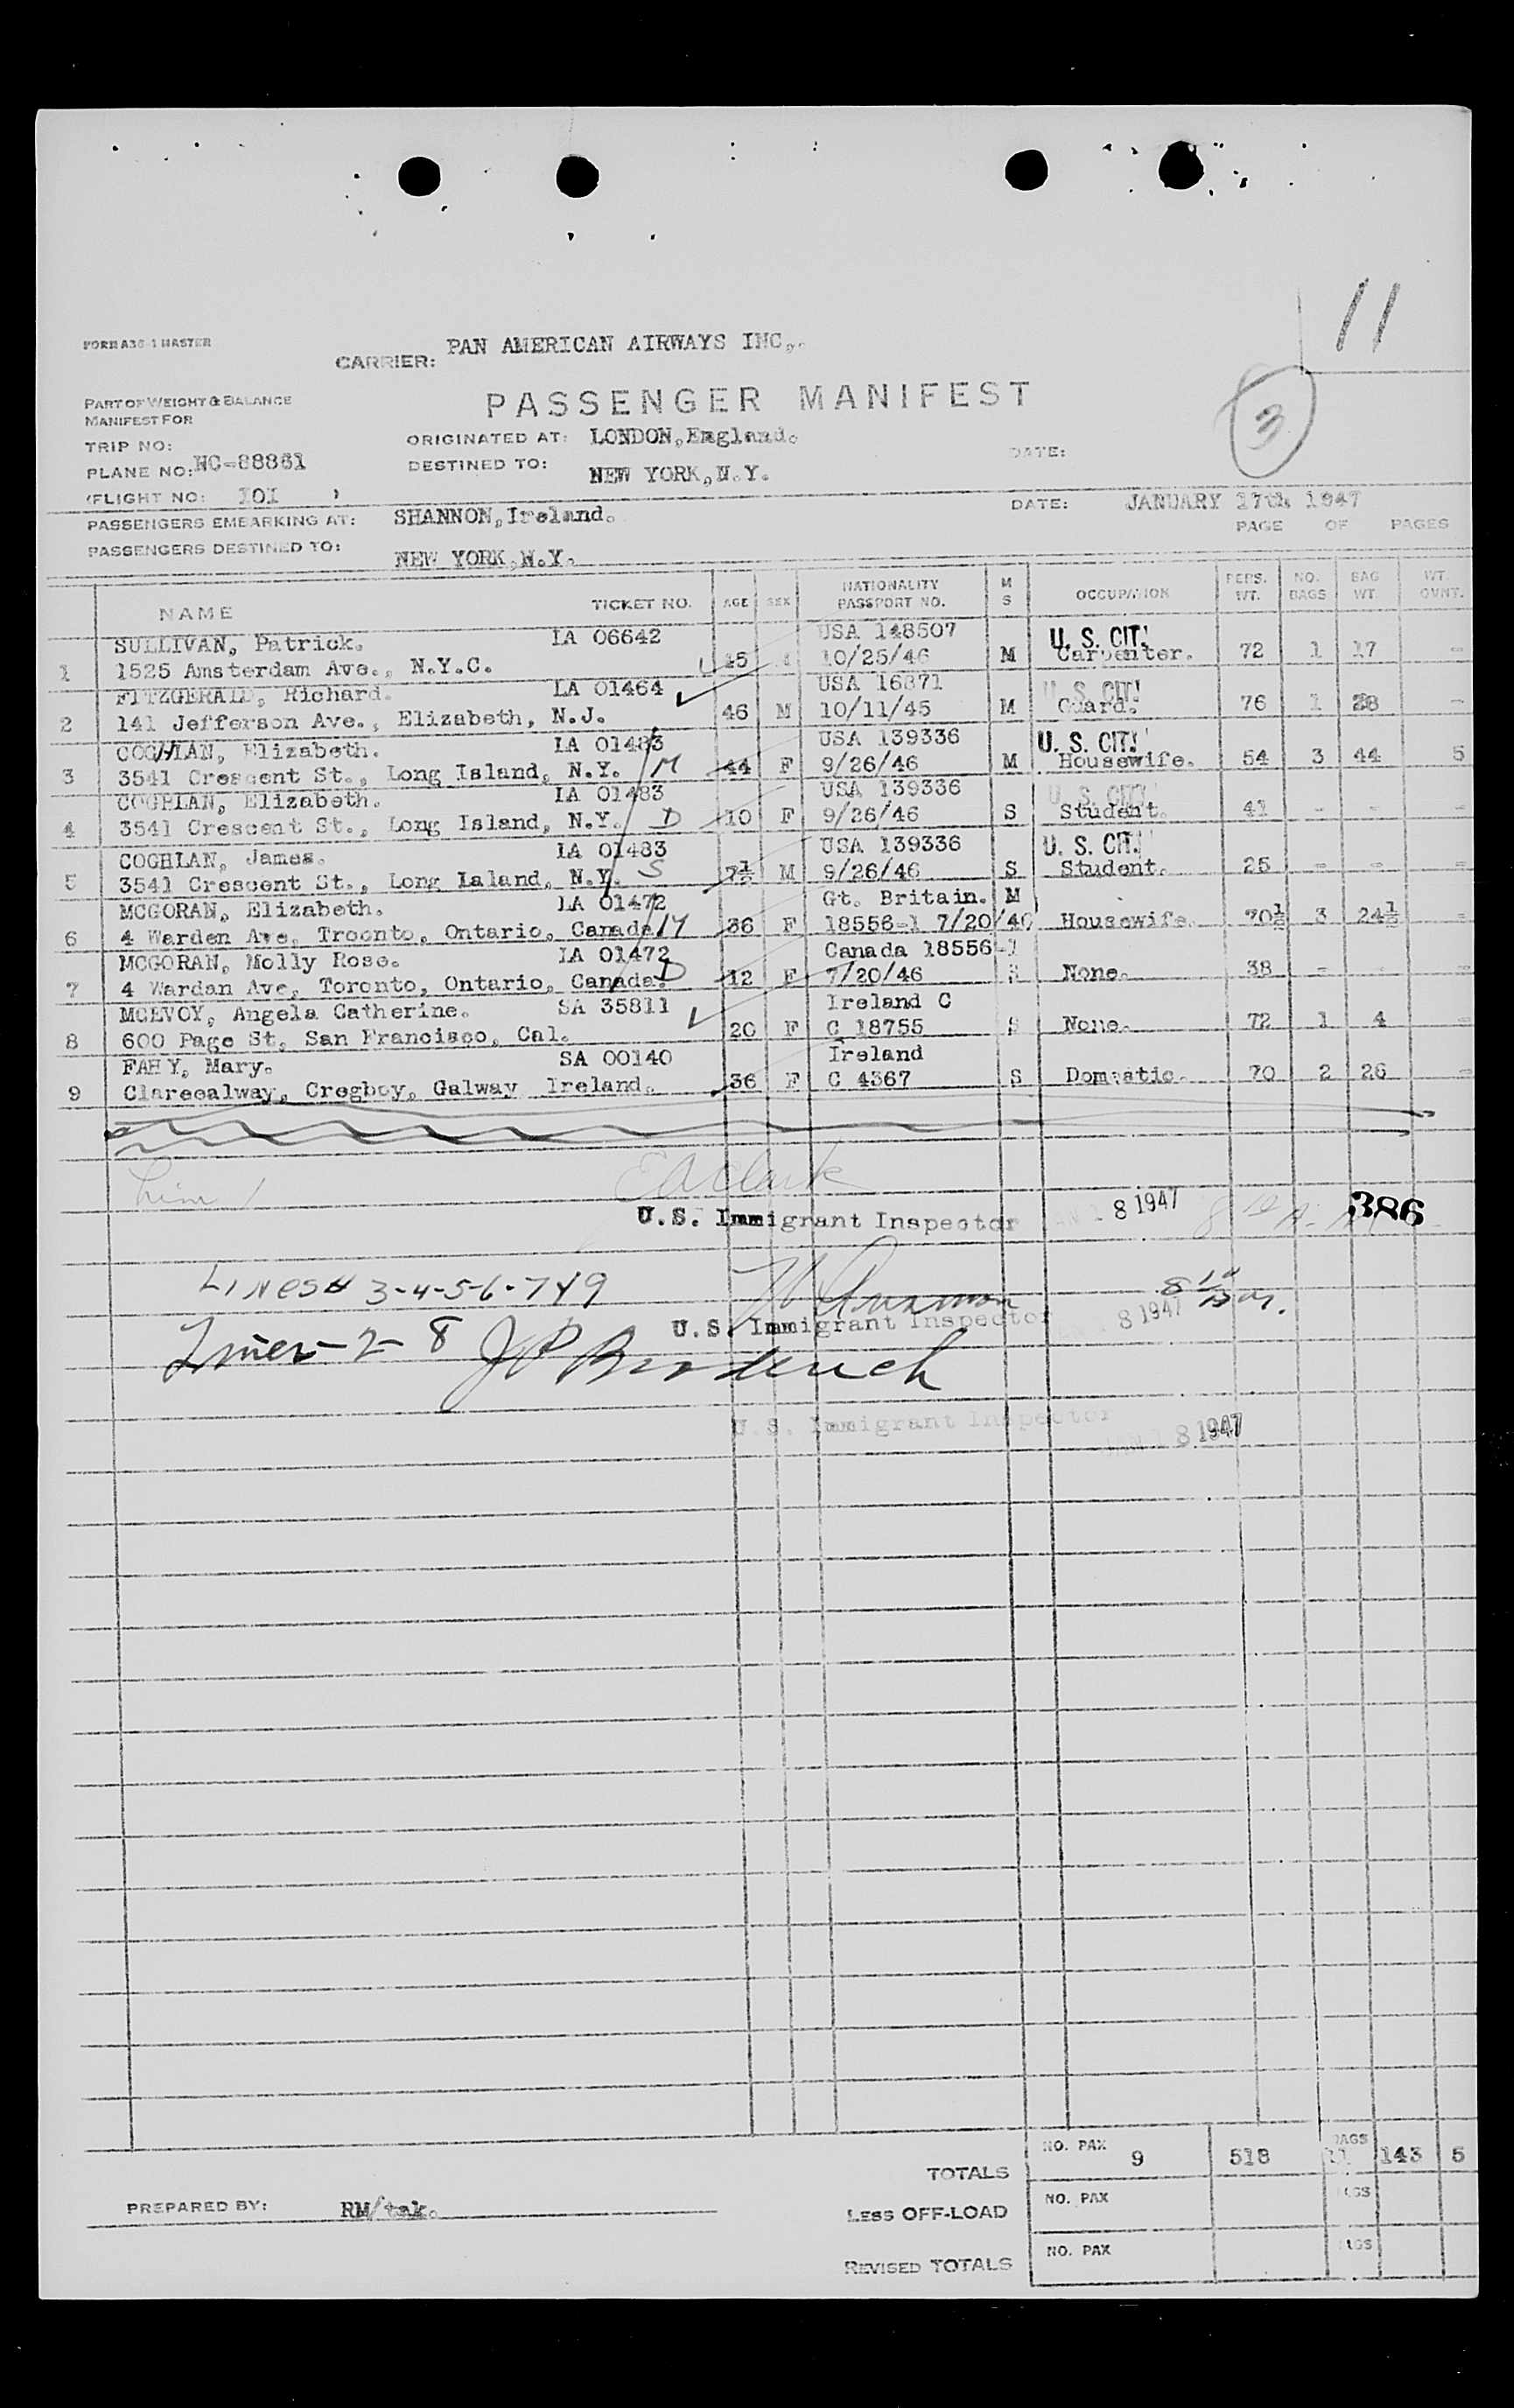 11
FORM A36-1 MASTER
CARRIER: PAN AMERICAN AIRWAYS INC.
PART OF WEIGHT & BALANCE
MANIFEST FOR
PASSENGER MANIFEST
3
TRIP NO:
ORIGINATED AT: LONDON, England.
DATE:
PLANE NO: NC-88861
DESTINED TO: NEW YORK, N.Y.
(FLIGHT NO: 101 )
DATE: JANUARY 17th 1947
PASSENGERS EMBARKING AT: SHANNON, Ireland.
PAGE OF PAGES
PASSENGERS DESTINED TO: NEW YORK, N.Y.
NAME TICKET NO. AGE SEX NATIONALITY PASSPORT NO. M S OCCUPATION PERS. WT. NO. BAGS BAG WT. WT. OVNT.
SULLIVAN, Patrick. IA 06642 USA 148507 U. S. CIT.
1 1525 Amsterdam Ave., N.Y.C. 10/25/46 M Carpenter. 72 1 17 -
FITZGERALD, Richard. IA 01464 USA 16371 U. S. CIT.
2 141 Jefferson Ave., Elizabeth, N.J. 46 M 10/11/45 M Guard. 76 1 28 -
COGHLAN, Elizabeth. IA 01483 USA 139336 U. S. CIT.
3 3541 Crescent St., Long Island, N.Y. M 44 F 9/26/46 M Housewife. 54 3 44 5
COGHLAN, Elizabeth. IA 01483 USA 139336 U. S. CIT.
4 3541 Crescent St., Long Island, N.Y. D 10 F 9/26/46 S Student. 41 - - -
COGHLAN, James. IA 01483 USA 139336 U. S. CIT.
5 3541 Crescent St., Long Island, N.Y. S 7½ M 9/26/46 S Student. 25 - - -
MCGORAN, Elizabeth. IA 01472 Gt. Britain. M
6 4 Warden Ave, Troonto, Ontario, Canada M 36 F 18556-1 7/20/46 Housewife. 70½ 3 24½ -
MCGORAN, Molly Rose. IA 01472 Canada 18556-1
7 4 Wardan Ave, Toronto, Ontario, Canada. D 12 F 7/20/46 S None. 38 - - -
MCEVOY, Angela Catherine. SA 35811 Ireland C
8 600 Page St, San Francisco, Cal. 20 F C 18755 S None. 72 1 4 -
FAHY, Mary. SA 00140 Ireland
9 Clareealway, Cregboy, Galway Ireland. 36 F C 4367 S Domestic. 70 2 26 -
Line 1
E A Clark
U.S. Immigrant Inspector JAN 18 1947 386
LINES# 3-4-5-6-7+9
U.S. Immigrant Inspector JAN 18 1947
Lines - 2 - 8 J P
U.S. Immigrant Inspector JAN 18 1947
TOTALS NO. PAX 9 518 BAGS 11 143 5
PREPARED BY: RM/tak.
LESS OFF-LOAD NO. PAX BAGS
REVISED TOTALS NO. PAX BAGS